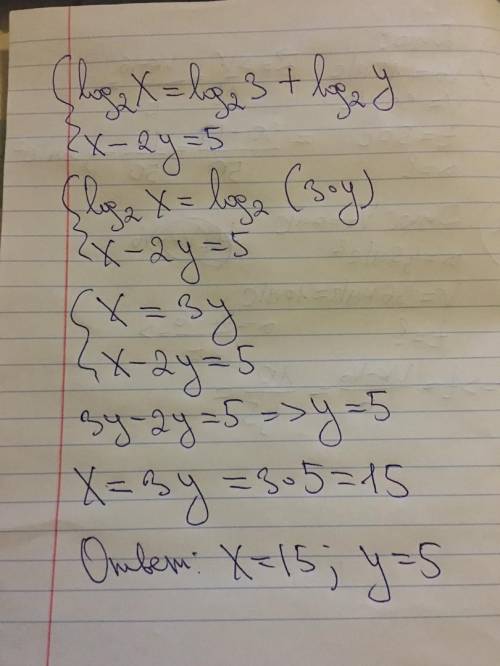 log₂x = log₂3 + log₂y
x - 2y = 5
log₂x = log₂(3·y)
x - 2y = 5
x = 3y
x - 2y = 5
3y - 2y = 5 => y = 5
x = 3y = 3·5 = 15
Ответ: x = 15; y = 5